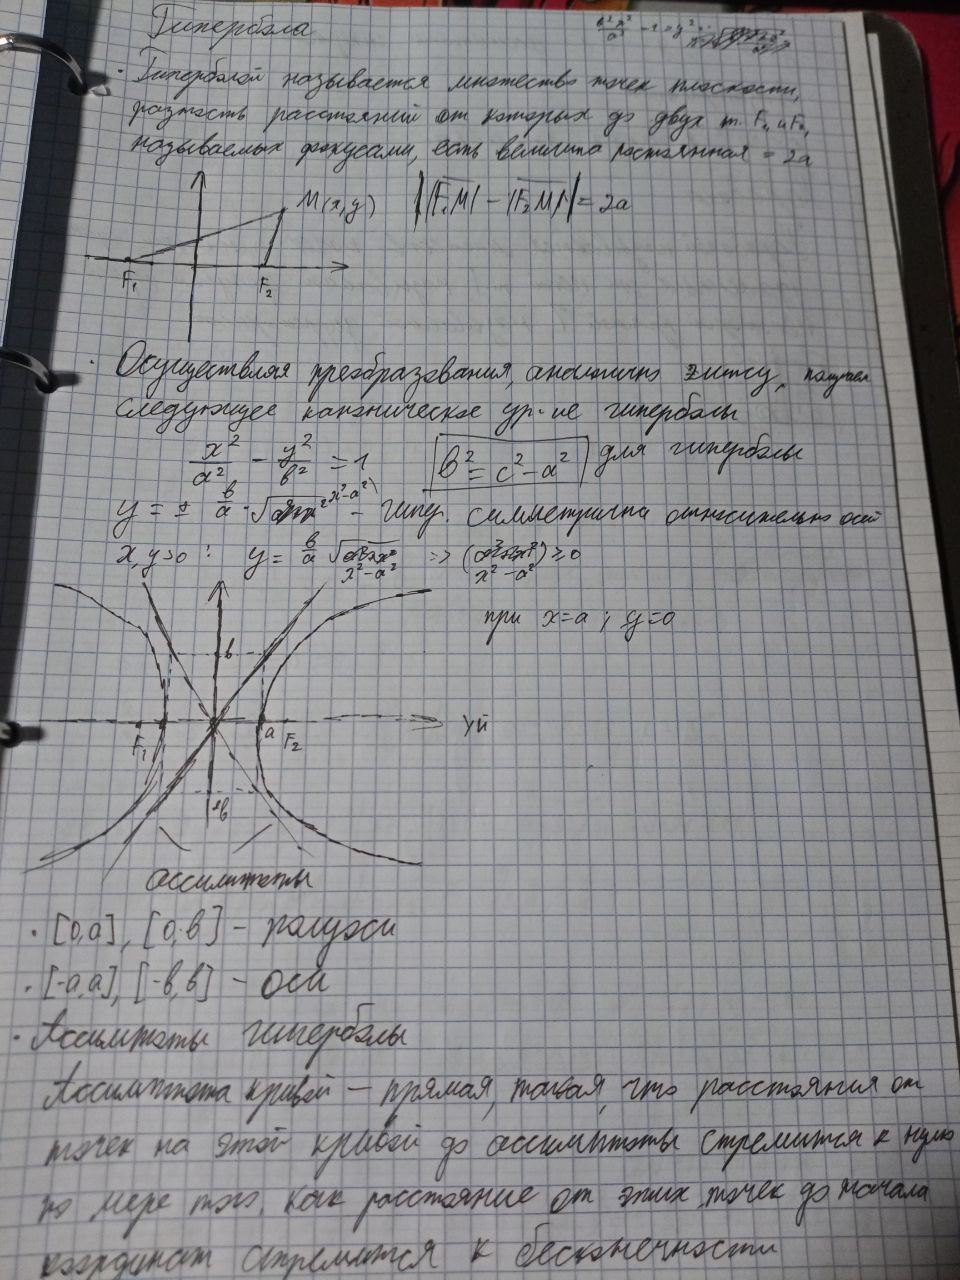 Гипербола
Гиперболой называется множество точек плоскости,
разность расстояний от которых до двух т. F₁ и F₂,
называемых фокусами, есть величина постоянная = 2a
M(x,y) ||F₁M| - |F₂M|| = 2a
F₁ F₂
Осуществляя преобразования, аналогично элипсу, получаем
следующее каноническое ур-ие гиперболы
x²/a² - y²/b² = 1 b² = c² - a² для гиперболы
y = ± b/a · √(x²-a²) - гипер. симметрична относительно осей
x, y>0 : y = b/a √(x²-a²) => (x²-a²) ≥ 0
при x=a ; y=0
b
F₁ a F₂
-b
ассимптоты
[0,a], [0,b] - полуоси
[-a,a], [-b,b] - оси
Ассимптоты гиперболы
Ассимптота кривой - прямая, такая, что расстояния от
точек на этой кривой до ассимптоты стремится к нулю
по мере того, как расстояние от этих точек до начала
координат стремится к бесконечности